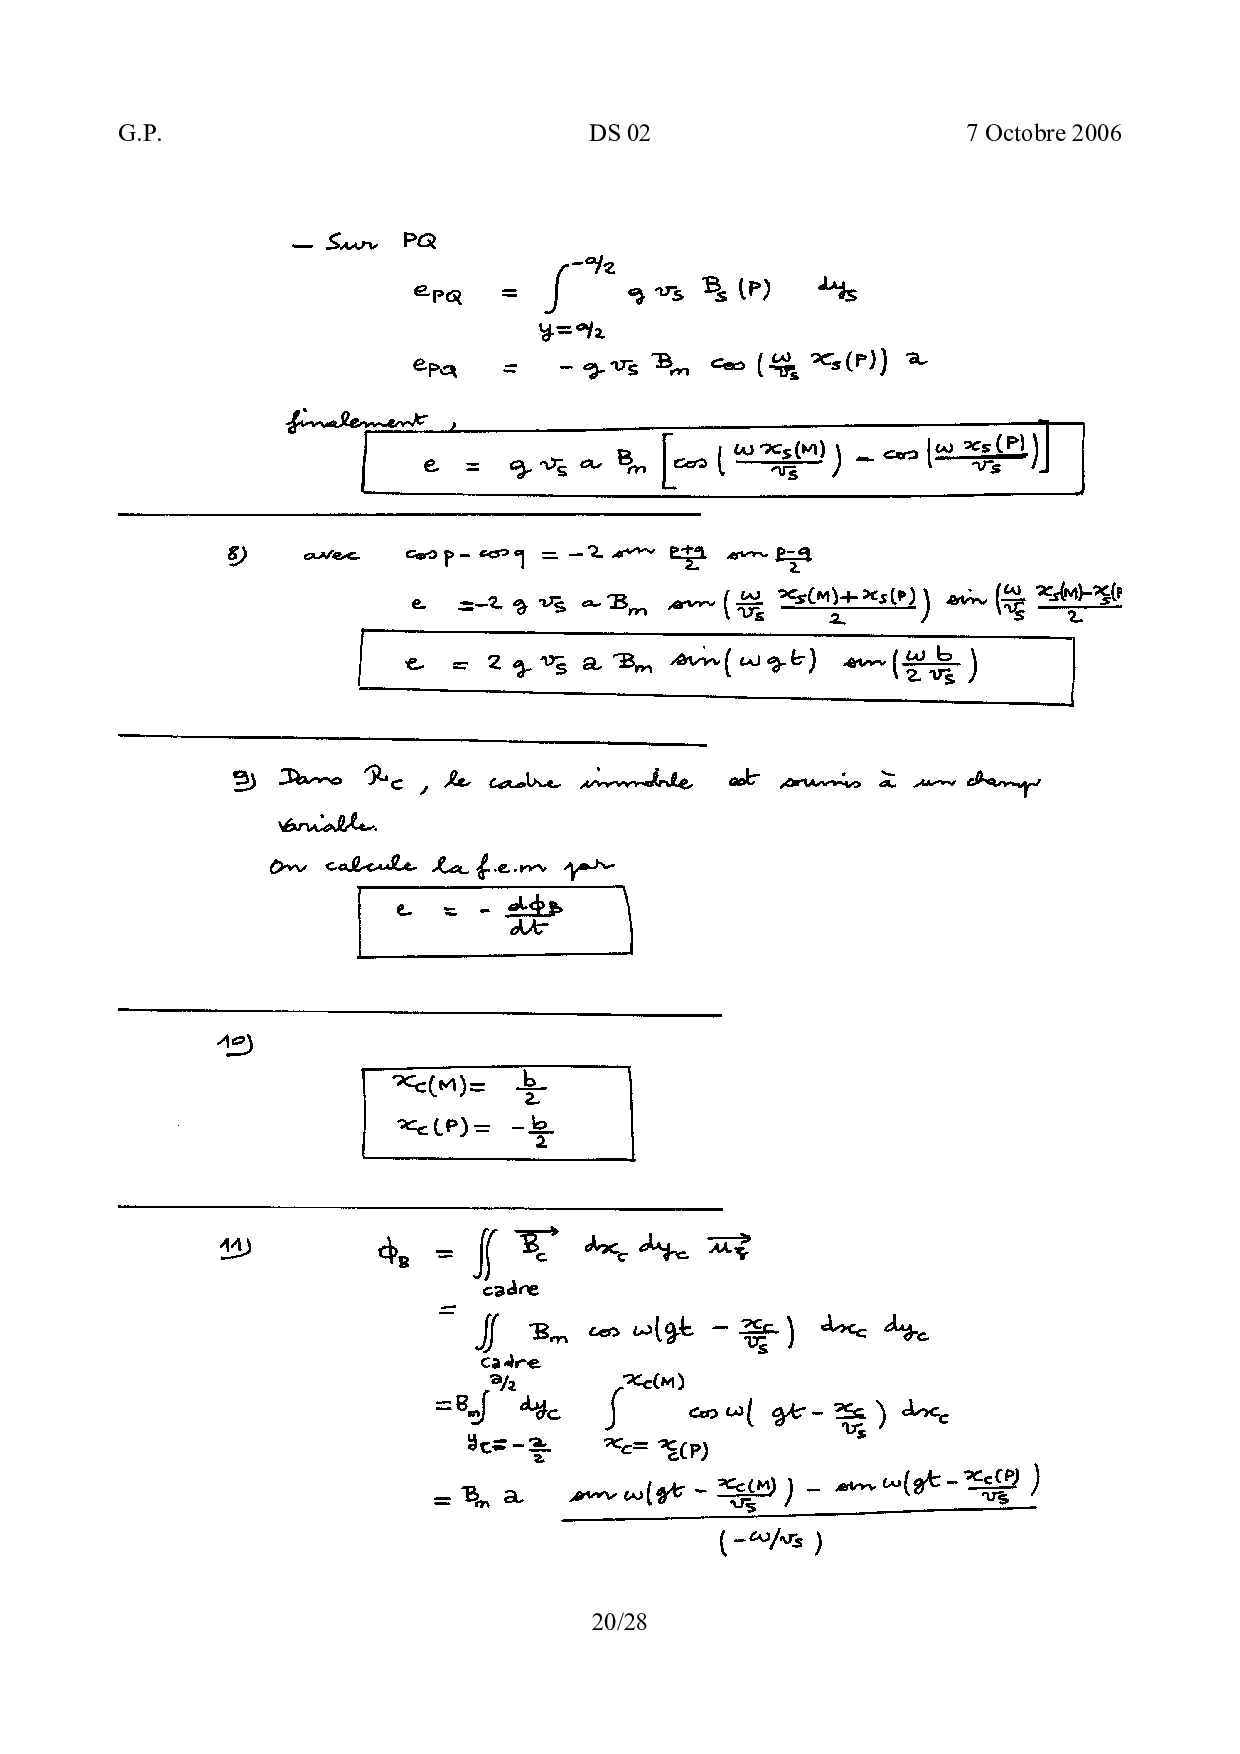 G.P. DS 02 7 Octobre 2006
– Sur PQ
e_PQ = ∫_{y=a/2}^{-a/2} g v_s B_s (P) dy_s
e_PQ = - g v_s B_m cos (ω/v_s x_s(P)) a
finalement,
e = g v_s a B_m [cos (ω x_s(M)/v_s) – cos (ω x_s(P)/v_s)]
8) avec cos p - cos q = -2 sin p+q/2 sin p-q/2
e = -2 g v_s a B_m sin (ω/v_s x_s(M)+x_s(P)/2) sin (ω/v_s x_s(M)-x_s(P/2
e = 2 g v_s a B_m sin(ω g t) sin (ω b/2 v_s)
9) Dans R_c, le cadre immobile est soumis à un champ
variable.
On calcule la f.e.m par
e = - dϕ_B/dt
10)
x_c(M) = b/2
x_c(P) = - b/2
11) ϕ_B = ∬_cadre B_c→ dx_c dy_c u_z→
= ∬_cadre B_m cos ω(gt - x_c/v_s) dx_c dy_c
= B_m ∫_{y_c=-a/2}^{a/2} dy_c ∫_{x_c=x_c(P)}^{x_c(M)} cos ω( gt - x_c/v_s ) dx_c
= B_m a sin ω(gt - x_c(M)/v_s) - sin ω(gt - x_c(P)/v_s) / (-ω/v_s)
20/28